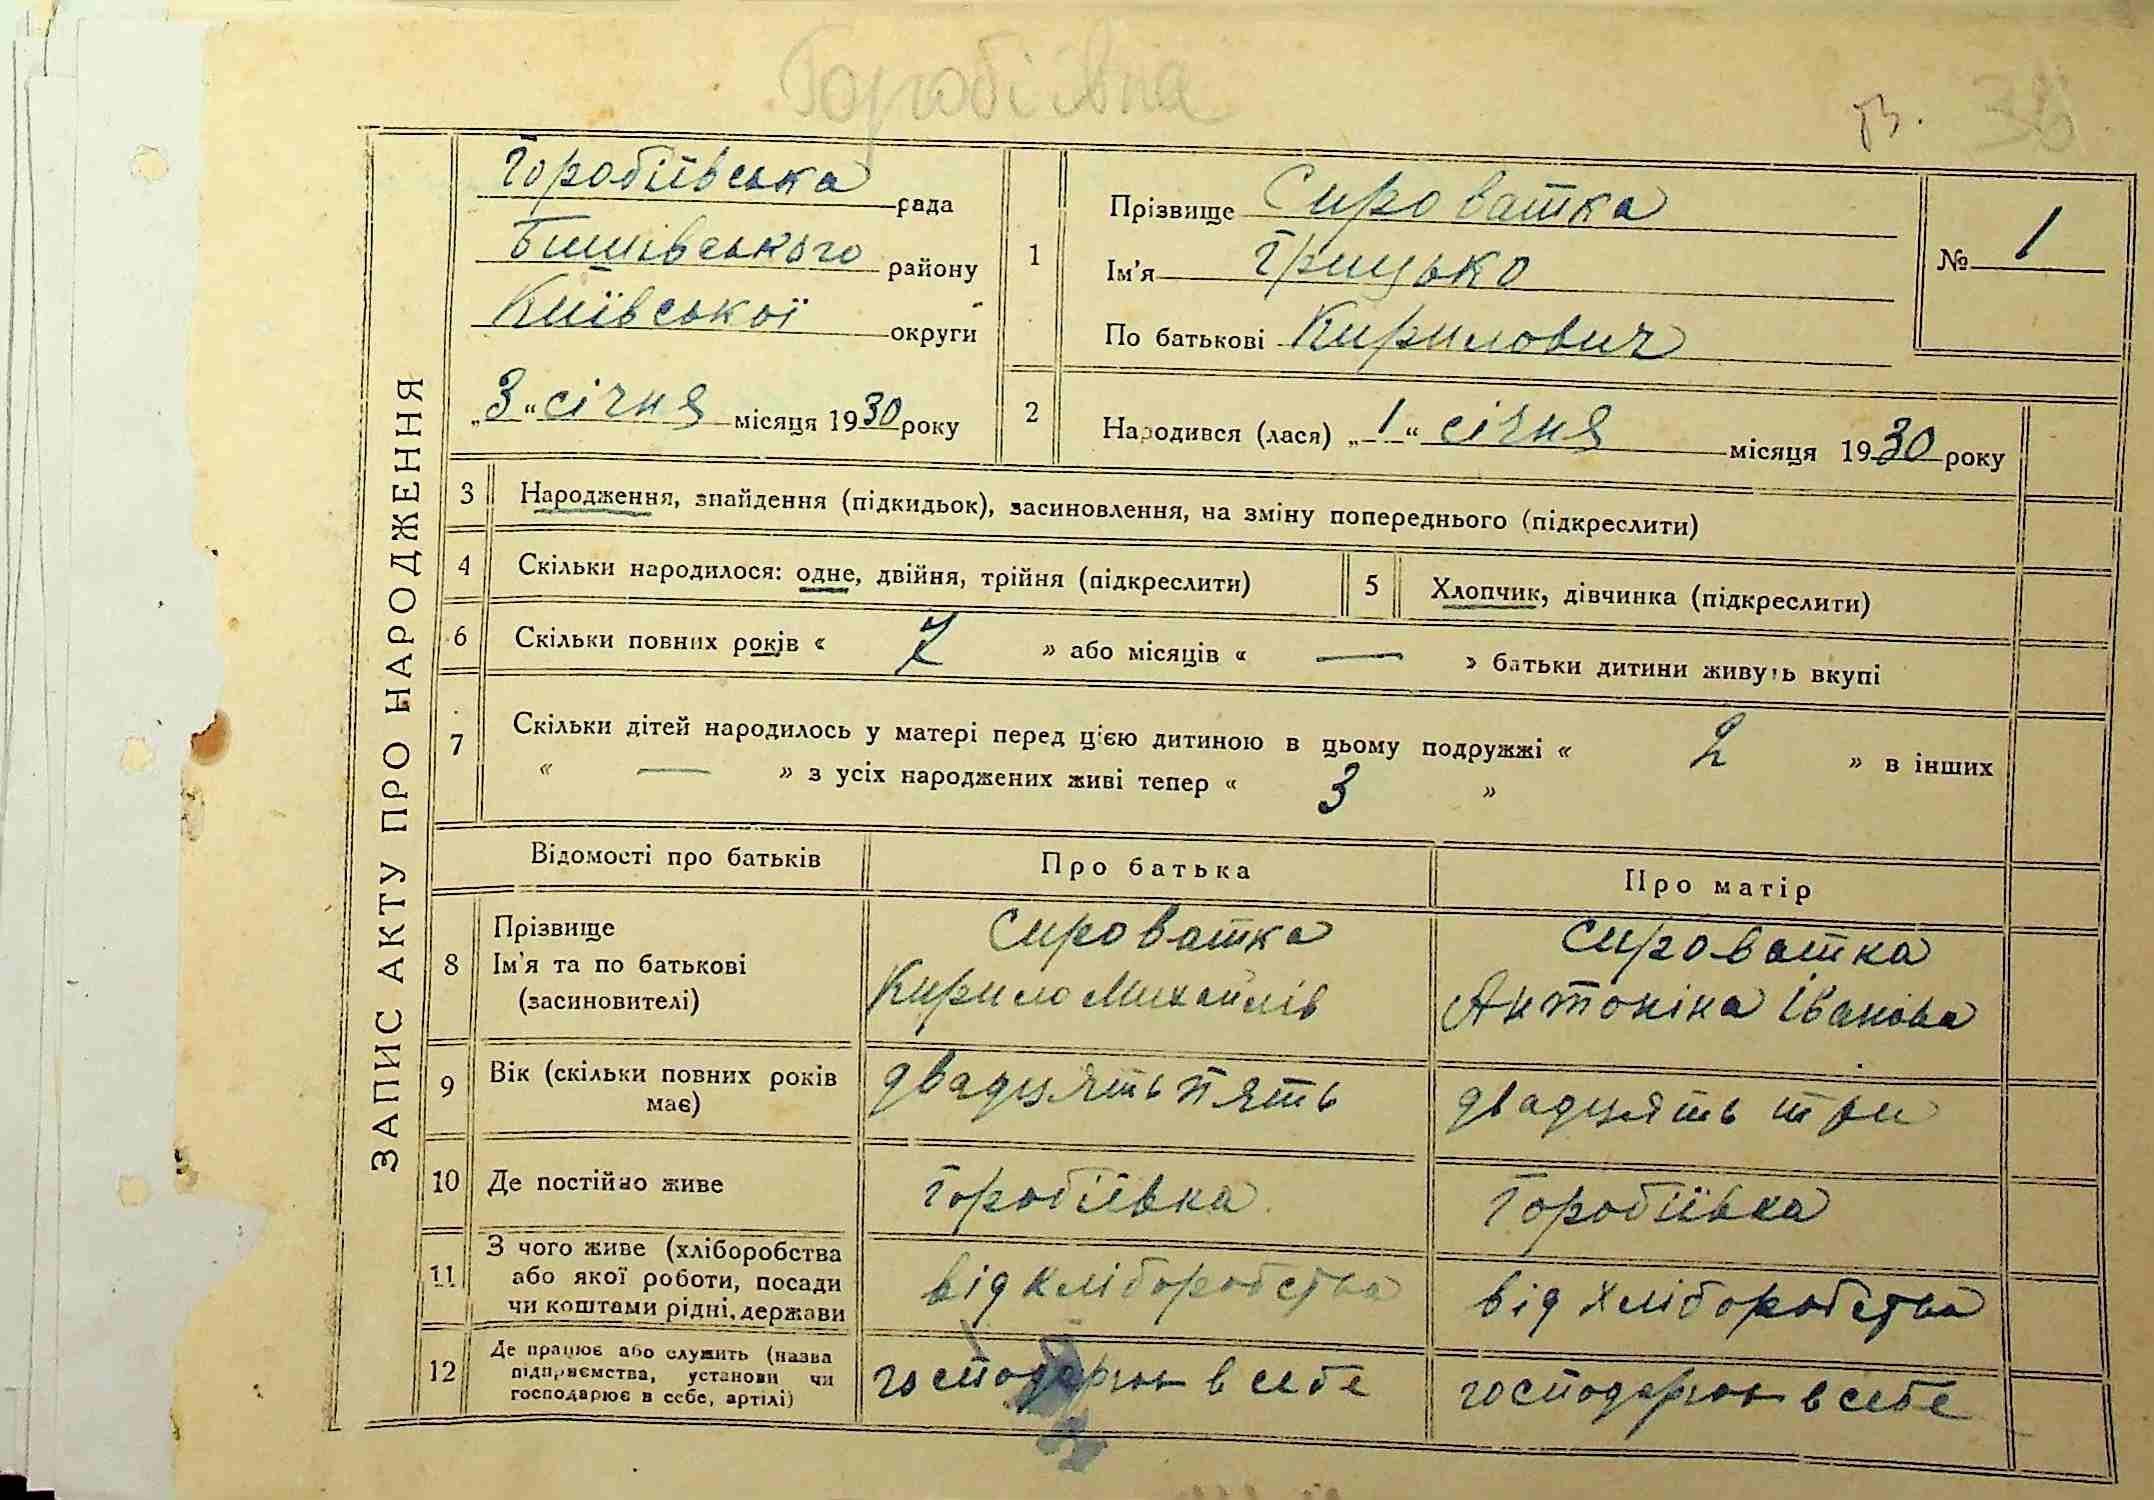 Горобіївка
38
ЗАПИС АКТУ ПРО НАРОДЖЕННЯ
Горобіївська рада
Бишівського району
Київської округи
„3“ січня місяця 1930 року
1
Прізвище Сироватка
Ім'я Грицько
По батькові Кирилович
№ 1
2
Народився (лася) „1“ січня місяця 1930 року
3 Народження, знайдення (підкидьок), засиновлення, на зміну попереднього (підкреслити)
4 Скільки народилося: одне, двійня, трійня (підкреслити)
5 Хлопчик, дівчинка (підкреслити)
6 Скільки повних років « 7 » або місяців « — » батьки дитини живуть вкупі
7 Скільки дітей народилось у матері перед цією дитиною в цьому подружжі « 2 » в інших
« — » з усіх народжених живі тепер « 3 »
Відомості про батьків Про батька Про матір
8 Прізвище
Ім'я та по батькові
(засиновителі)
Сироватка
Кирило Михайлів
Сироватка
Антоніна Іванова
9 Вік (скільки повних років
має)
двадцять пять
двадцять три
10 Де постійно живе
Горобіївка
Горобіївка
11 З чого живе (хліборобства
або якої роботи, посади
чи коштами рідні, держави
від хліборобства
від хліборобства
12 Де працює або служить (назва
підприємства, установи чи
господарює в себе, артілі)
господарює в себе
господарює в себе